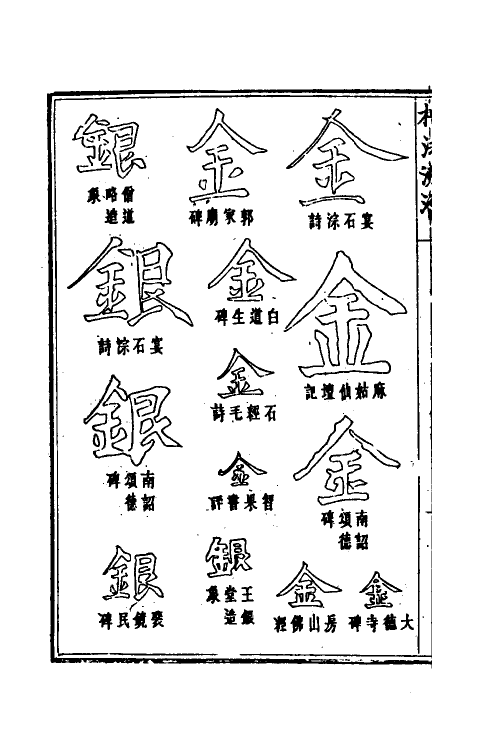 楷法溯源
金
宴石淙詩
金
麻姑仙壇記
金
南詔德頌碑
金
大德寺碑
金
房山佛經
金
郭家廟碑
金
白道生碑
金
石經毛詩
金
智果書評
銀
王銀堂造象
銀
僧道略造象
銀
宴石淙詩
銀
南詔德頌碑
銀
裴鏡民碑